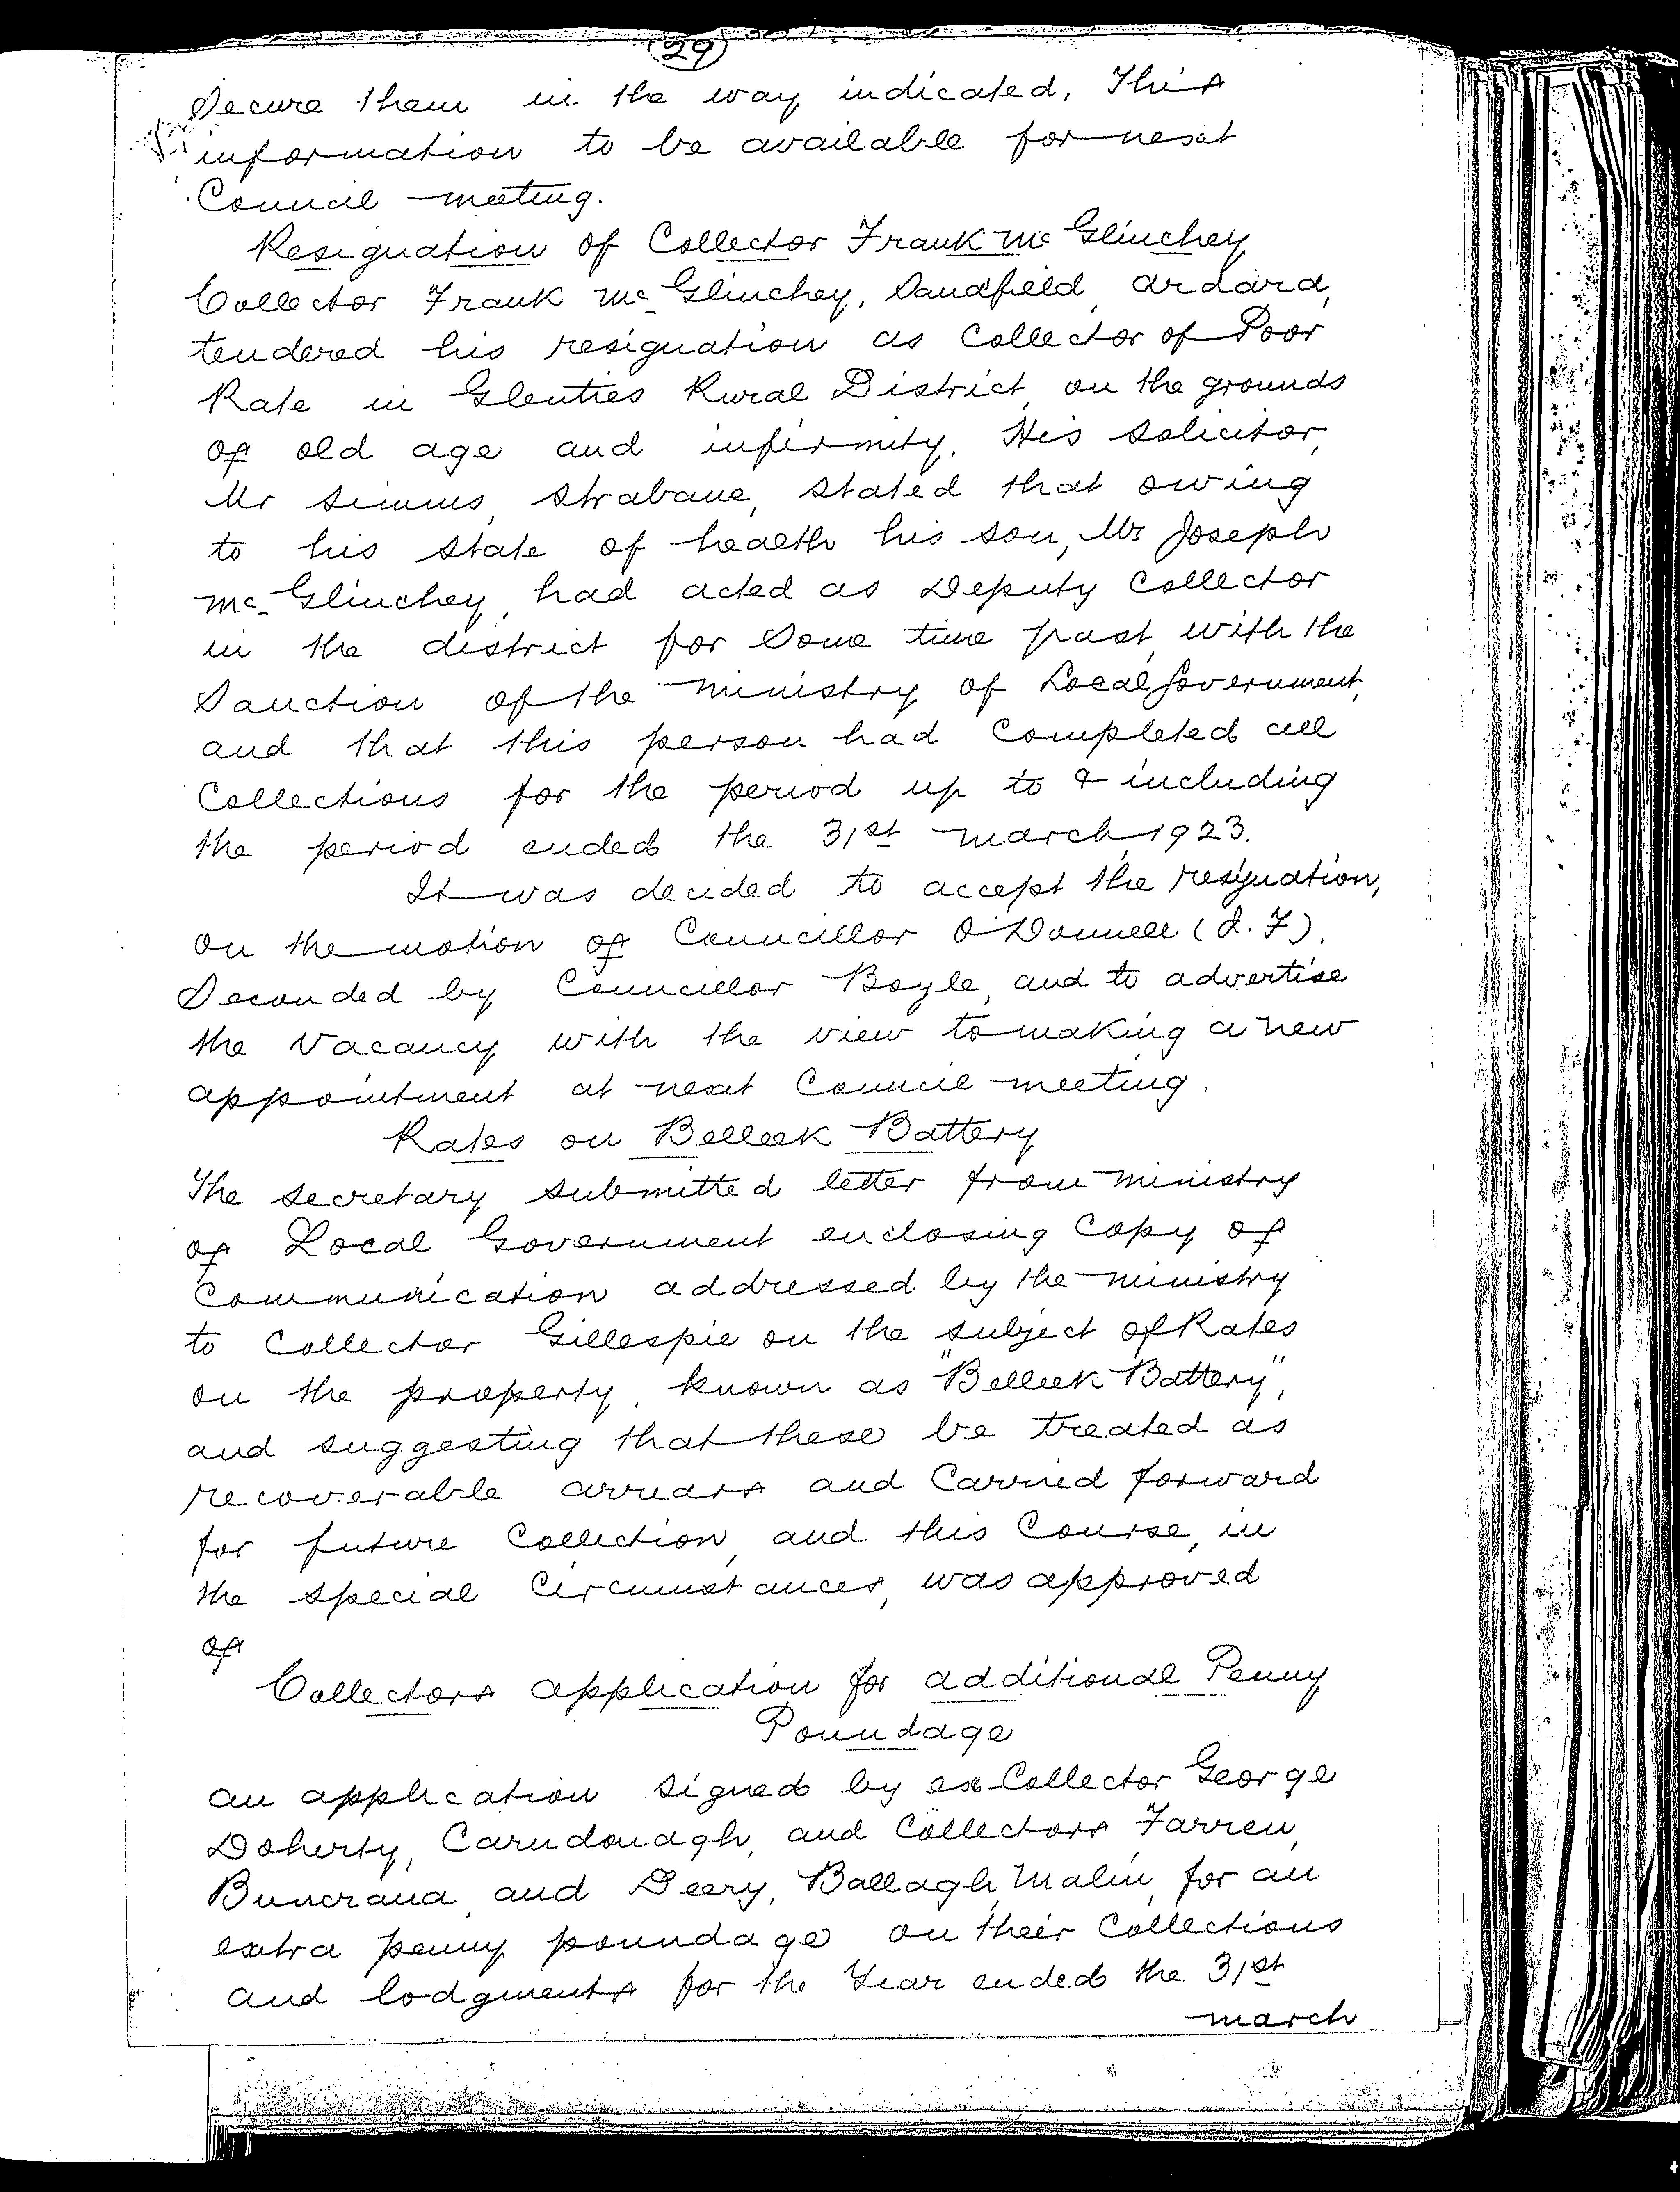 (29)
Secure them in the way indicated. This
information to be available for next
Council meeting.
Resignation of Collector Frank Mc Glinchey
Collector Frank Mc Glinchey, Sandfield, Ardara,
tendered his resignation as Collector of Poor
Rate in Glenties Rural District, on the grounds
of old age and infirmity. His solicitor,
Mr Simms, Strabane, stated that owing
to his state of health his son, Mr Joseph
Mc Glinchey, had acted as Deputy Collector
in the district for some time past, with the
Sanction of the Ministry of Local Government,
and that this person had completed all
Collections for the period up to & including
the period ended the 31st March, 1923.
It was decided to accept the resignation,
on the motion of Councillor O'Donnell (J.F).
Seconded by Councillor Boyle, and to advertise
the vacancy with the view to making a new
appointment at next Council meeting.
Rates on Belleek Battery
The secretary submitted letter from Ministry
of Local Government enclosing Copy of
Communication addressed by the Ministry
to Collector Gillespie on the subject of Rates
on the property, known as "Belleek Battery",
and suggesting that these be treated as
recoverable arrears and Carried forward
for future Collection, and this Course, in
the special Circumstances, was approved
of
Collectors application for additional Penny
Poundage
An application signed by ex Collector George
Doherty, Carndonagh, and Collectors Farren,
Buncrana, and Deery, Ballagh, Malin, for an
extra penny poundage on their Collections
and lodgments for the Year ended the 31st
March